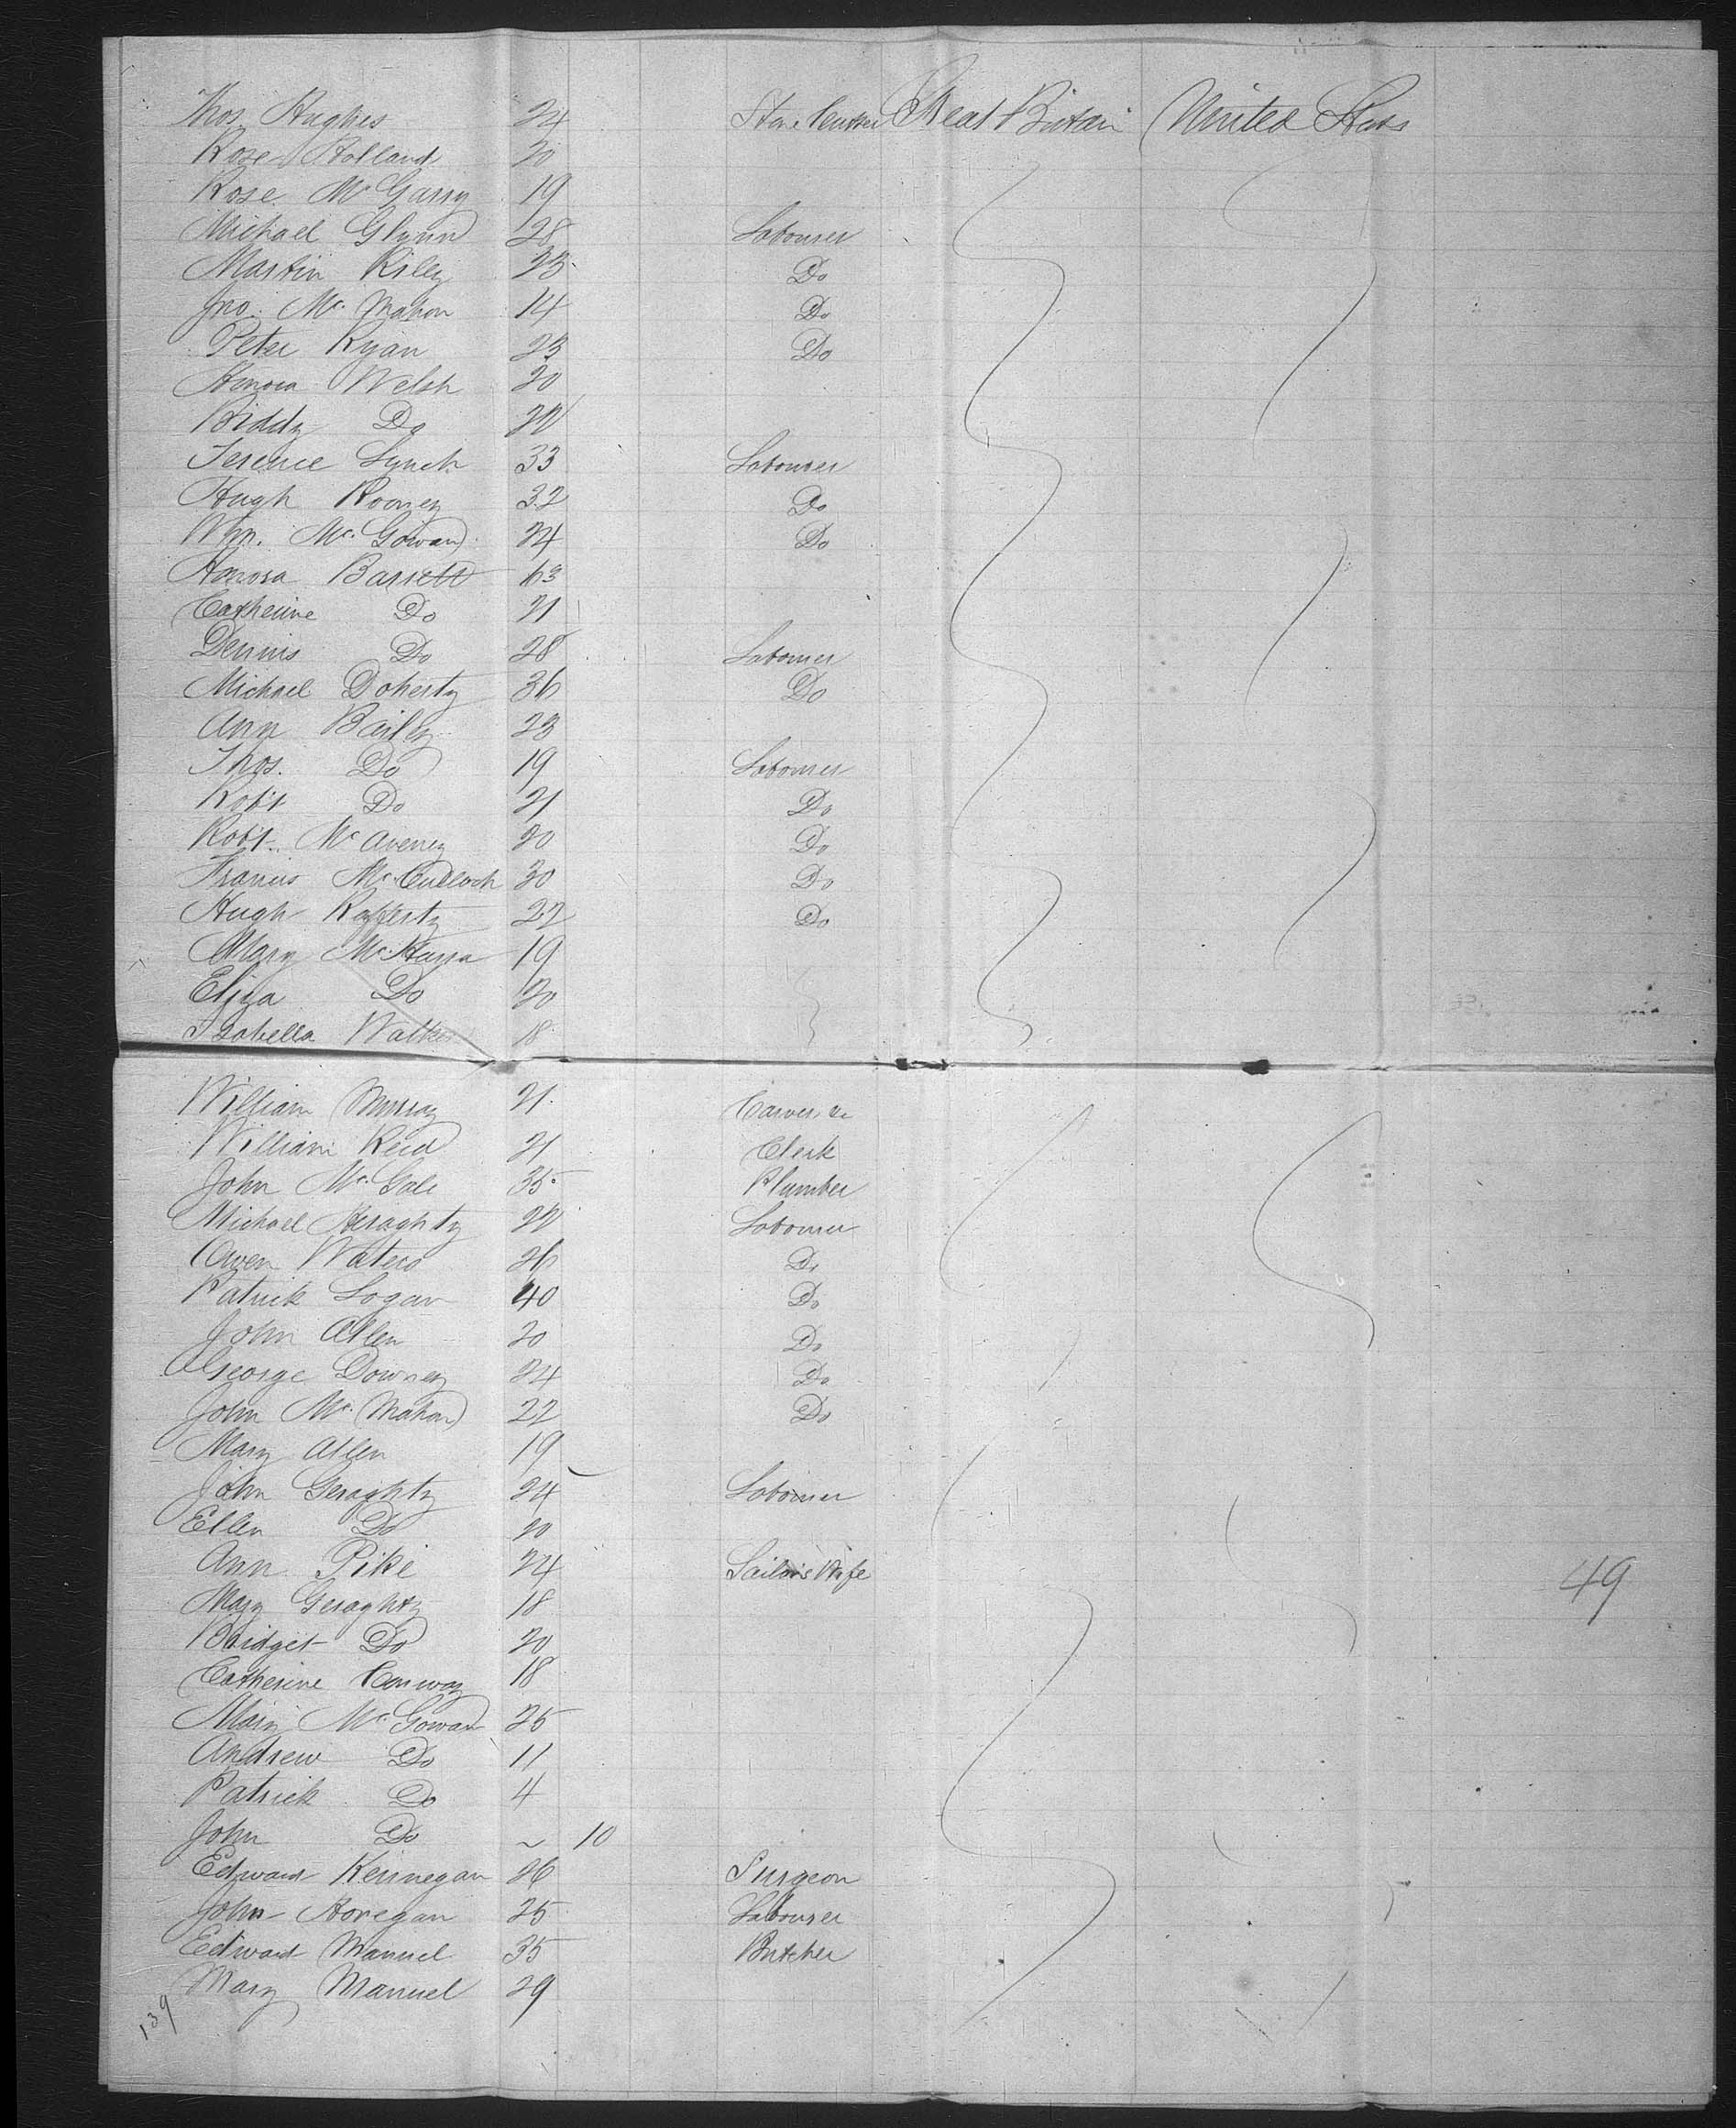 Thos. Hughes 24 Stone Cutter Great Britain United States
Rose Holland 20
Rose McGarry 19
Michael Glynn 28 Labourer
Martin Riley 23 Do
Jno. Mc. Mahon 14 Do
Peter Ryan 23 Do
Honora Welsh 20
Biddy Do
Terence Lynch 33 Labourer
Hugh Rooney 32 Do
Wm. Mc. Gowan 24 Do
Honora Barrett 63
Catherine Do 21
Dennis Do 28 Labourer
Michael Doherty 36 Do
Ann Bailey 23
Thos. Do 19 Labourer
Robt Do 21 Do
Robt. Mc Aveney 20 Do
Francis Mc. Culloch 30 Do
Hugh Rafferty 22 Do
Mary Mc. 19
Eliza Do 20
Isabella Walker 18
William Murray 21 Carver &c
William Reid 21 Clerk
John Mc. Gale 35 Plumber
Michael Heraghty Labourer
Owen Waters 26 Do
Patrick Logan 40 Do
John Allen 20 Do
George Downey 24 Do
John Mc. Mahon 22 Do
Mary Allen 19
John Geraghty 24 Labourer
Ellen Do 20
Ann Pike 24 Sailors Wife 49
Mary Geraghty 18
Bridget Do 20
Catherine Conway 18
Mary Mc. Gowan 25
Andrew Do 11
Patrick Do 4
John Do ~ 10
Edward Kennegan 26 Surgeon
John Horegan 25 Labourer
Edward Manuel 35 Butcher
Mary Manuel 29
139